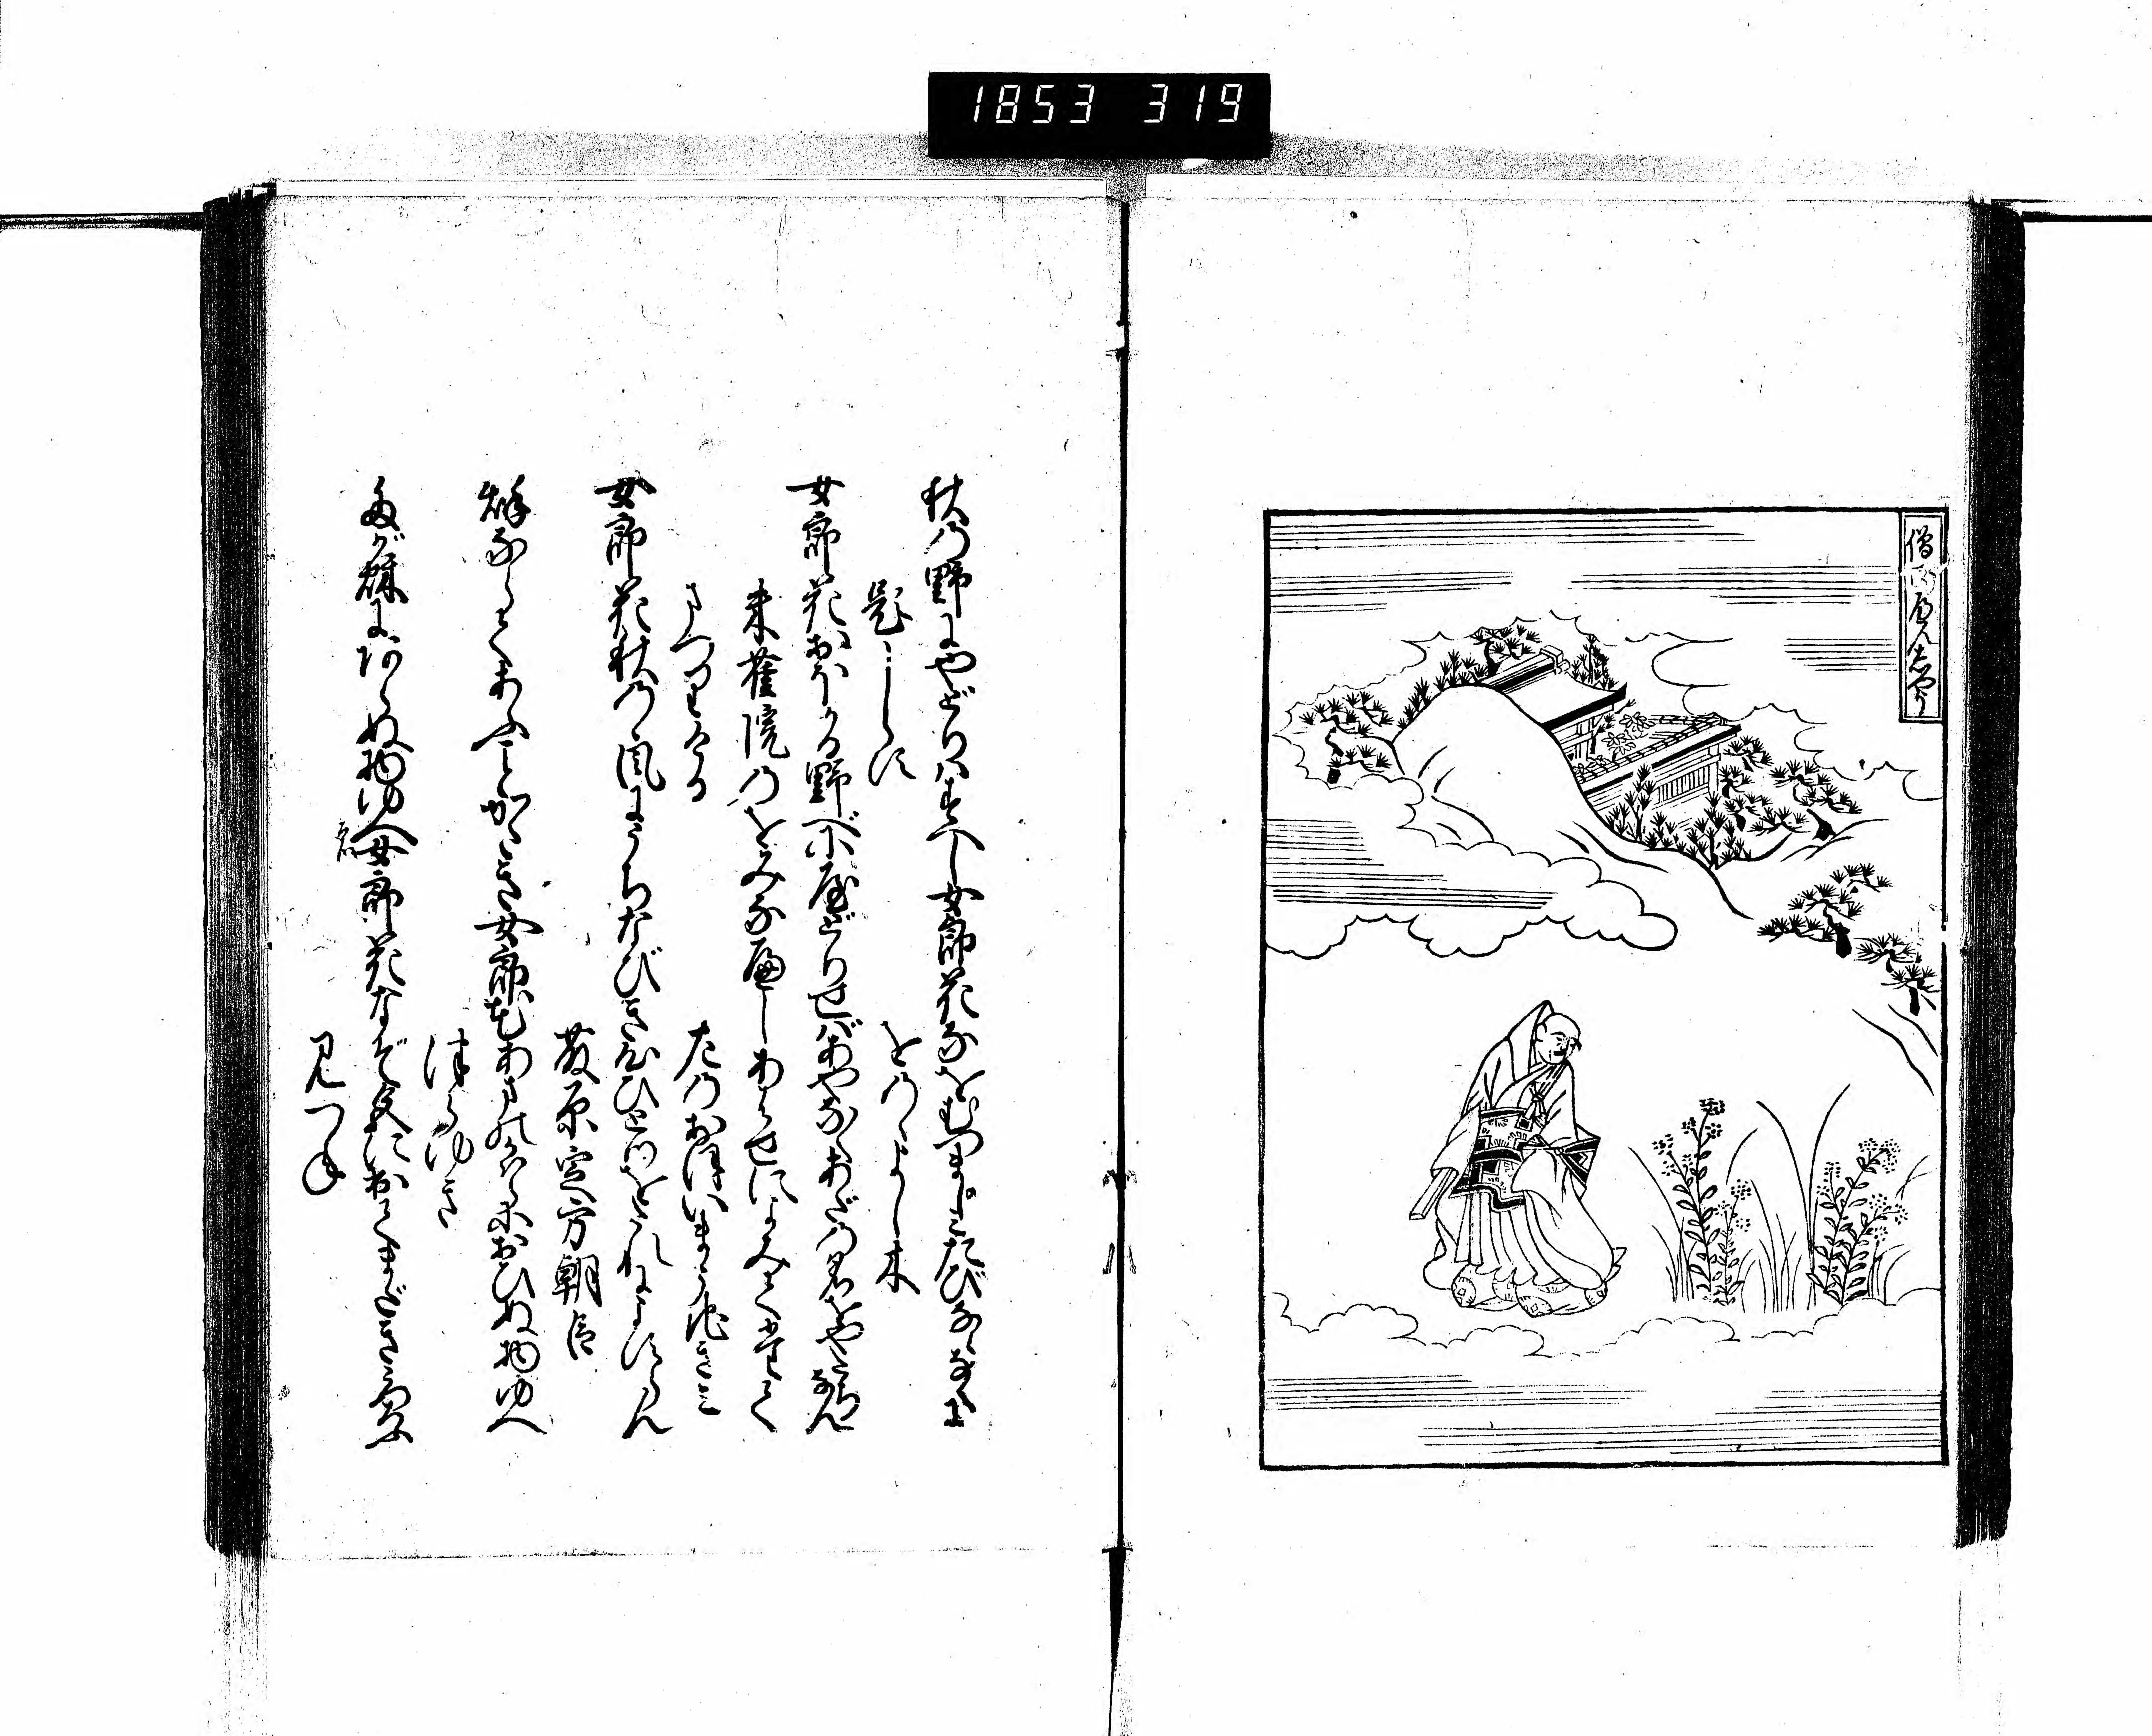 1853 319
僧正へんぜう
秋の野にやどりはすべし女郎花なをむつましみたびならなくに
題しらず
をのゝよし木
女郎花おほかる野べにやどりせばあやなくあだの名をやたちなん
朱雀院のをみなへしあはせによみてたてま
つりける
左のおほいまうちぎみ
女郎花秋の風にうちなびき心ひとつをたれによすらん
藤原定方朝臣
秋ならであふことかたき女郎花あまのかはらにおひぬ物ゆへ
つらゆき
たが秋にあらぬ物ゆへ女郎花なぞ色に出てまだきうつろふ
みつね